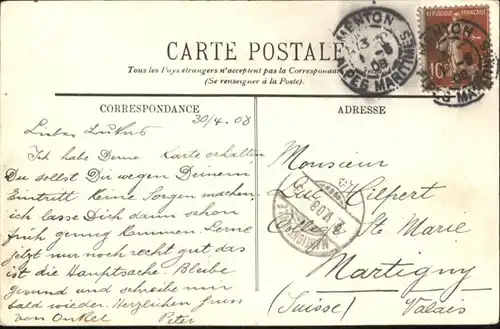 CARTE POSTALE
Tous les Pays étrangers n'acceptent pas la Correspondance
(Se renseigner à la Poste).
MENTON
ALPES MARITIMES
REPUBLIQUE FRANÇAISE
10c
CORRESPONDANCE
30/4.08
Lieber
Ich habe Deine Karte erhalten
Du sollst Dir wegen Deinem
Eintritt keine Sorgen machen.
ich lasse Dich dann schon
früh genug kommen. Lerne
jetzt nur noch recht gut das
ist die Hauptsache. Bleibe
gesund und schreibe mir
bald wieder. Herzlichen Gruss
von Onkel Peter
ADRESSE
Monsieur
Hilpert
College Ste Marie
Martigny
(Suisse) Valais